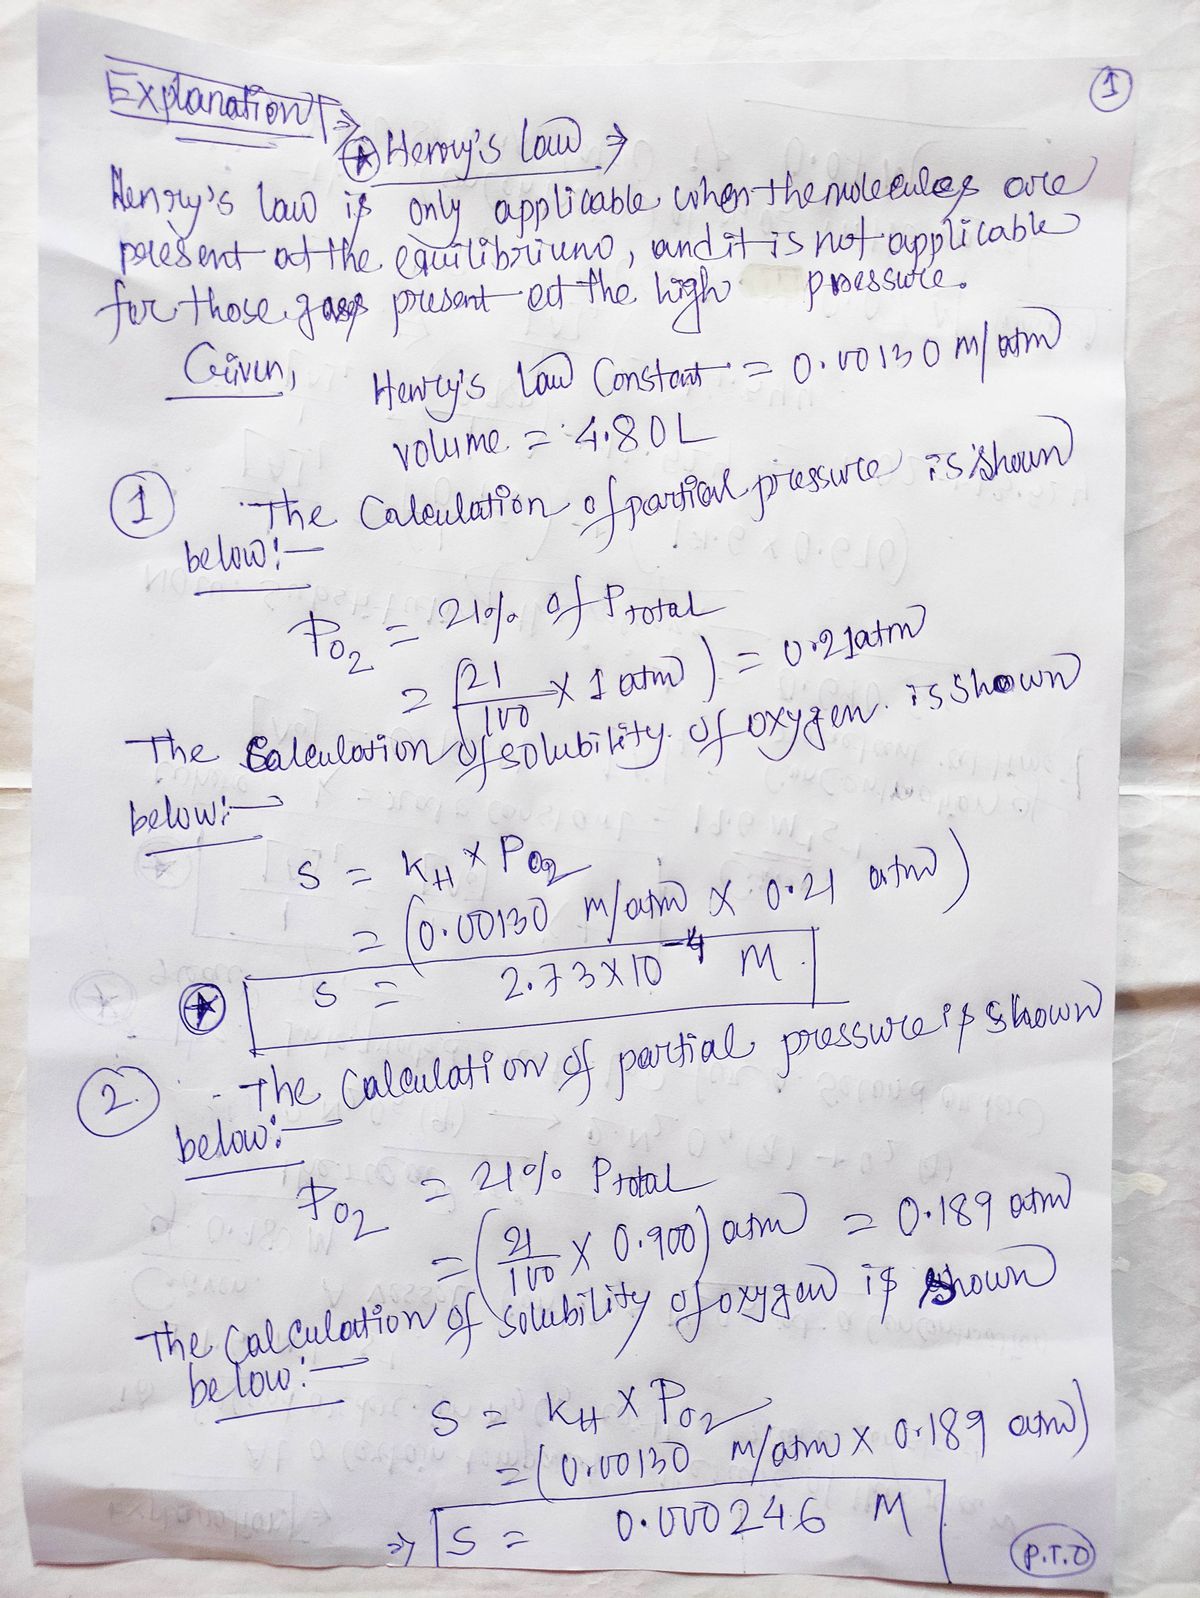 1
Explanation ⇒
★ Henry's law ⇒
Henry's law is only applicable when the molecules are
present at the equilibrium, and it is not applicable
for those gases present at the high pressure.
Given,
Henry's law Constant = 0.00130 M/atm
volume = 4.80L
1 The Calculation of partial pressure is shown
below:-
P_O2 = 21% of P_total
= (21/100 × 1 atm) = 0.21atm
The Calculation of solubility of oxygen is shown
below:-
S = K_H × P_O2
= (0.00130 M/atm × 0.21 atm)
★ S = 2.73×10^-4 M.
2. The Calculation of partial pressure is shown
below:-
P_O2 = 21% P_total
= (21/100 × 0.900) atm = 0.189 atm
The Calculation of solubility of oxygen is shown
below:-
S = K_H × P_O2
= (0.00130 M/atm × 0.189 atm)
⇒ S = 0.000246 M
P.T.O